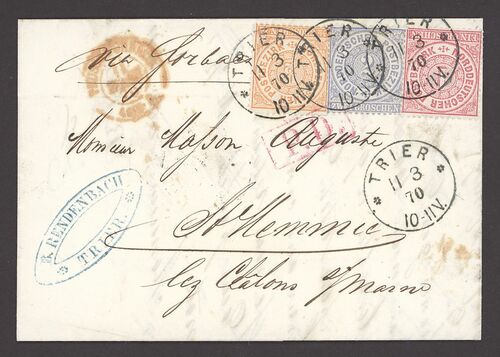 via Forbach
TRIER
11 3
70
10-11V.
TRIER
11 3
70
10-11V.
TRIER
11 3
70
NORDDEUTSCHER
GROSCHEN
P.D.
Monsieur Masson Auguste
TRIER
11 3
70
10-11V.
B. RENDENBACH
TRIER.
St Hemmie
lez Châlons s/Marne